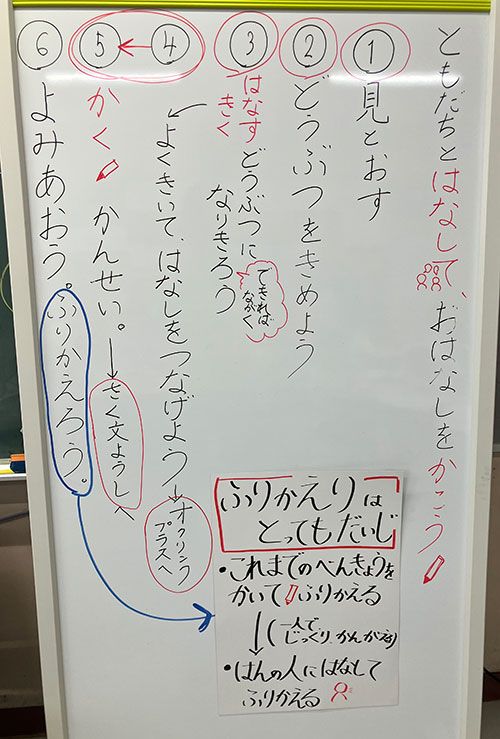 ともだちとはなして、おはなしをかこう
① 見とおす
② どうぶつをきめよう
③ はなす
きく
どうぶつに
なりきろう
できれば
ながく
④ よくきいて、はなしをつなげよう→オクリンク
プラスへ
⑤ かく かんせい。→さく文ようしへ
⑥ よみあおう。ふりかえろう。
ふりかえりは
とってもだいじ
・これまでのべんきょうを
かいてふりかえる
↓(一人で、
じっくり、かんがえる)
・はんの人にはなして
ふりかえる